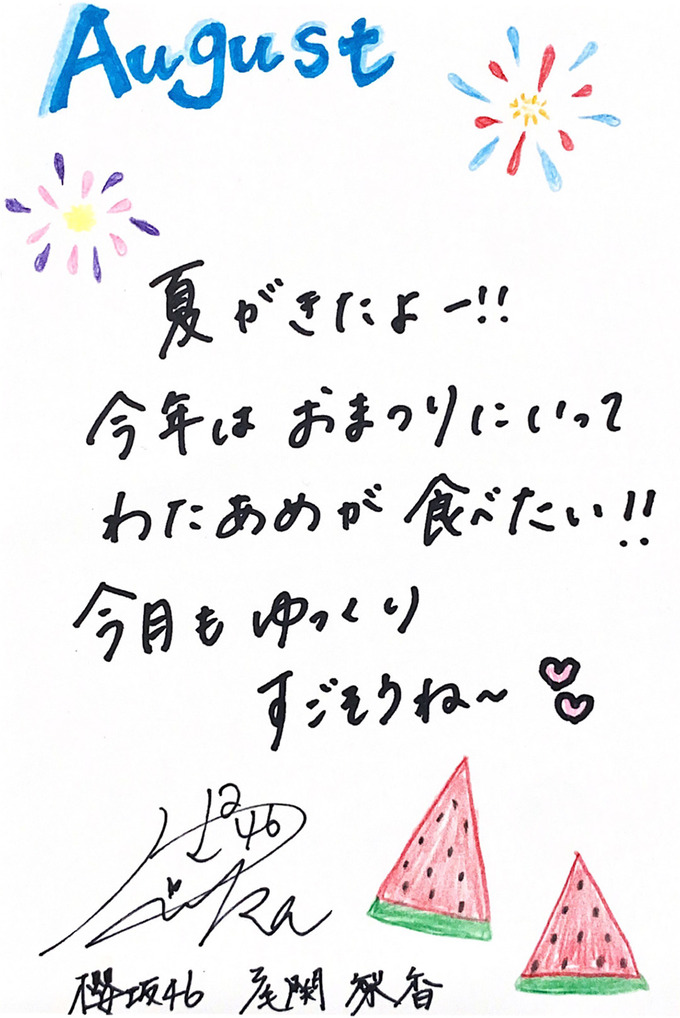 August
夏がきたよー!!
今年はおまつりにいって
わたあめが食べたい!!
今月もゆっくり
すごそうね〜
櫻坂46 尾関 梨香